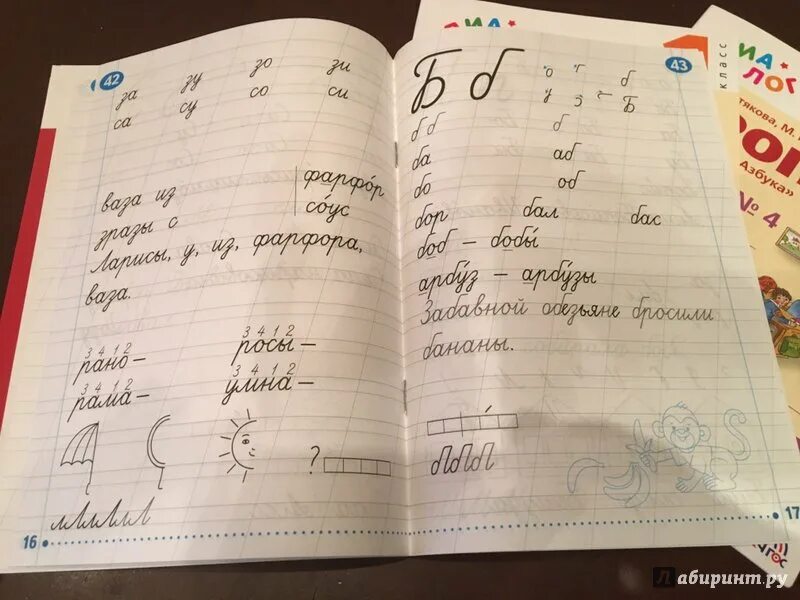 42
за зу зо зи
са су со си
ваза из
зразы с
фарфо́р
со́ус
Ларисы, у, из, фарфора,
ваза.
3 4 1 2
рано –
3 4 1 2
росы –
3 4 1 2
рама –
3 4 1 2
умна –
?
16
43
Б б
о г б
у З Б
б б б
ба аб
бо об
бор бал бас
боб – бобы́
арбу́з – арбу́зы
Забавной обезьяне бросили
бананы.
17
класс
ИА
ЛОГ
тякова, М.
Азбука»
№ 4
ФГОС
Лабиринт.ру